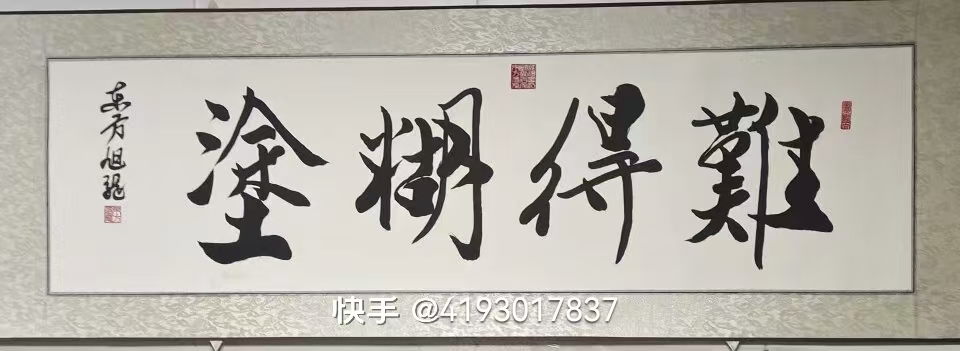 難得糊塗
东方旭龍
快手 @4193017837